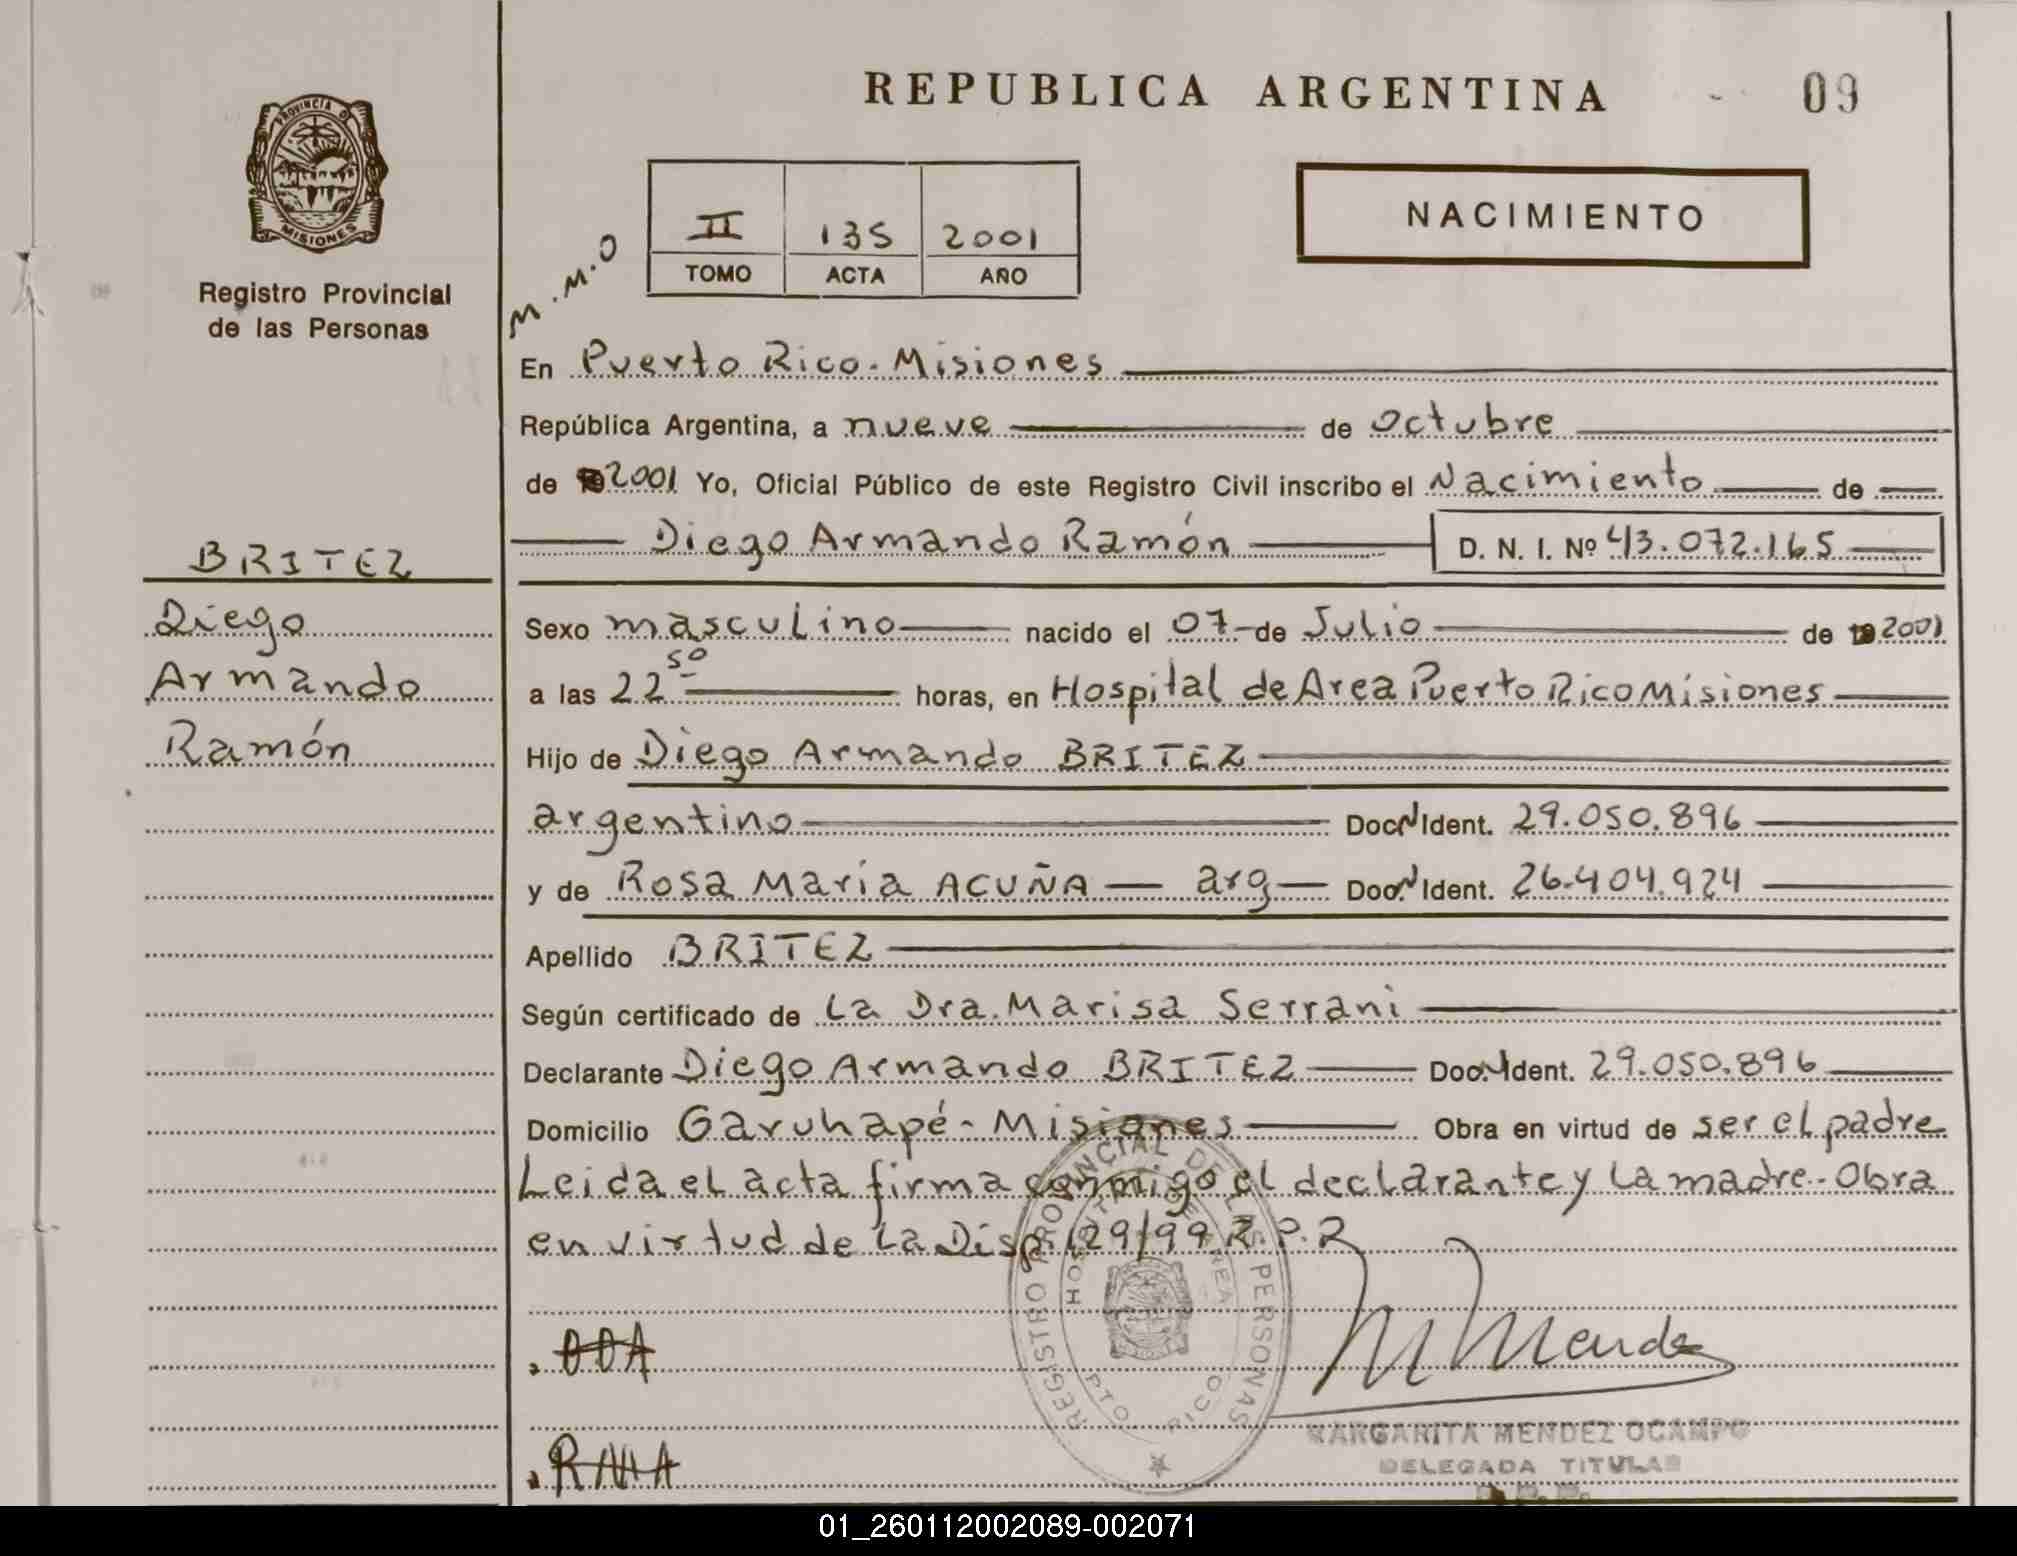 REPUBLICA ARGENTINA
09
PROVINCIA DE
MISIONES
Registro Provincial
de las Personas
M.M.O
II 135 2001
TOMO ACTA AÑO
NACIMIENTO
En Puerto Rico. Misiones
República Argentina, a nueve de octubre
de 2001 Yo, Oficial Público de este Registro Civil inscribo el Nacimiento de
Diego Armando Ramón D. N. I. Nº 43.072.165
BRITEZ
Diego
Armando
Ramón
Sexo masculino nacido el 07 de Julio de 2001
a las 22 50 horas, en Hospital de Area Puerto Rico Misiones
Hijo de Diego Armando BRITEZ
argentino Doc. Ident. 29.050.896
y de Rosa Maria ACUÑA arg Doc. Ident. 26.404.924
Apellido BRITEZ
Según certificado de La Dra. Marisa Serrani
Declarante Diego Armando BRITEZ Doc. Ident. 29.050.896
Domicilio Garuhapé - Misiones Obra en virtud de ser el padre
Leida el acta firma conmigo el declarante y la madre - Obra
en virtud de La Disp. 129/99 R.P.P
REGISTRO PROVINCIAL DE LAS PERSONAS
HOSPITAL DE AREA
PTO RICO
M Mendez
MARGARITA MENDEZ OCAMPO
DELEGADA TITULAR
01_260112002089-002071